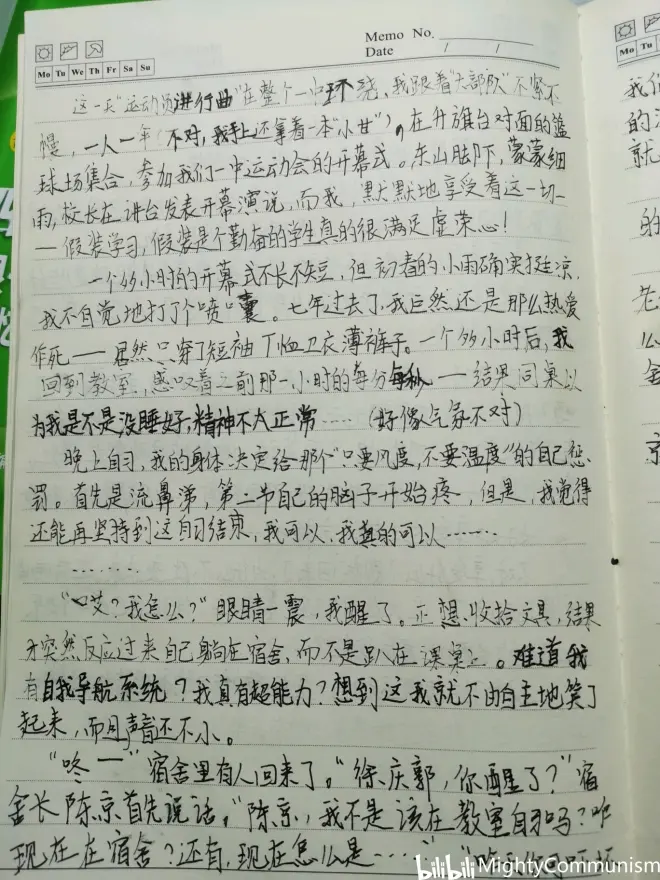 Memo No.
Date / /
Mo Tu We Th Fr Sa Su
Mo Tu
这一天"运动员进行曲"在整个一中环绕,我跟着"大部队"不紧不
慢,一人一年(不对,我手上还拿着一本"小甘"),在升旗台对面的篮
球场集合,参加我们一中运动会的开幕式。东山脚下,蒙蒙细
雨,校长在讲台发表开幕演说,而我,默默地享受着这一切—
—假装学习,假装是个勤奋的学生真的很满足虚荣心!
一个多小时的开幕式不长不短,但初春的小雨确实挺凉,
我不自觉地打了个喷嚏。七年过去了,我居然还是那么热爱
作死——居然只穿了短袖T恤卫衣薄裤子。一个多小时后,我
回到教室,感叹着之前那一小时的每分每秒——结果同桌以
为我是不是没睡好,精神不大正常……(好像气氛不对)
晚上自习,我的身体决定给那个"只要风度,不要温度"的自己惩
罚。首先是流鼻涕,第二节自己的脑子开始疼,但是,我觉得
还能再坚持到这自习结束,我可以,我真的可以……
………
"哎?我怎么?"眼睛一震,我醒了。正想收拾文具,结果
才突然反应过来自己躺在宿舍,而不是趴在课桌上。难道我
有自我导航系统?我真有超能力?想到这我就不由自主地笑了
起来,而且声音还不小。
"咚——"宿舍里有人回来了。"徐庆郭,你醒了?"宿
舍长陈京首先说话。"陈京,我不是该在教室自习吗?咋
现在在宿舍?还有,现在怎么是……"
我们
的
就
的
老
么
金
京
bilibili MightyCommunism